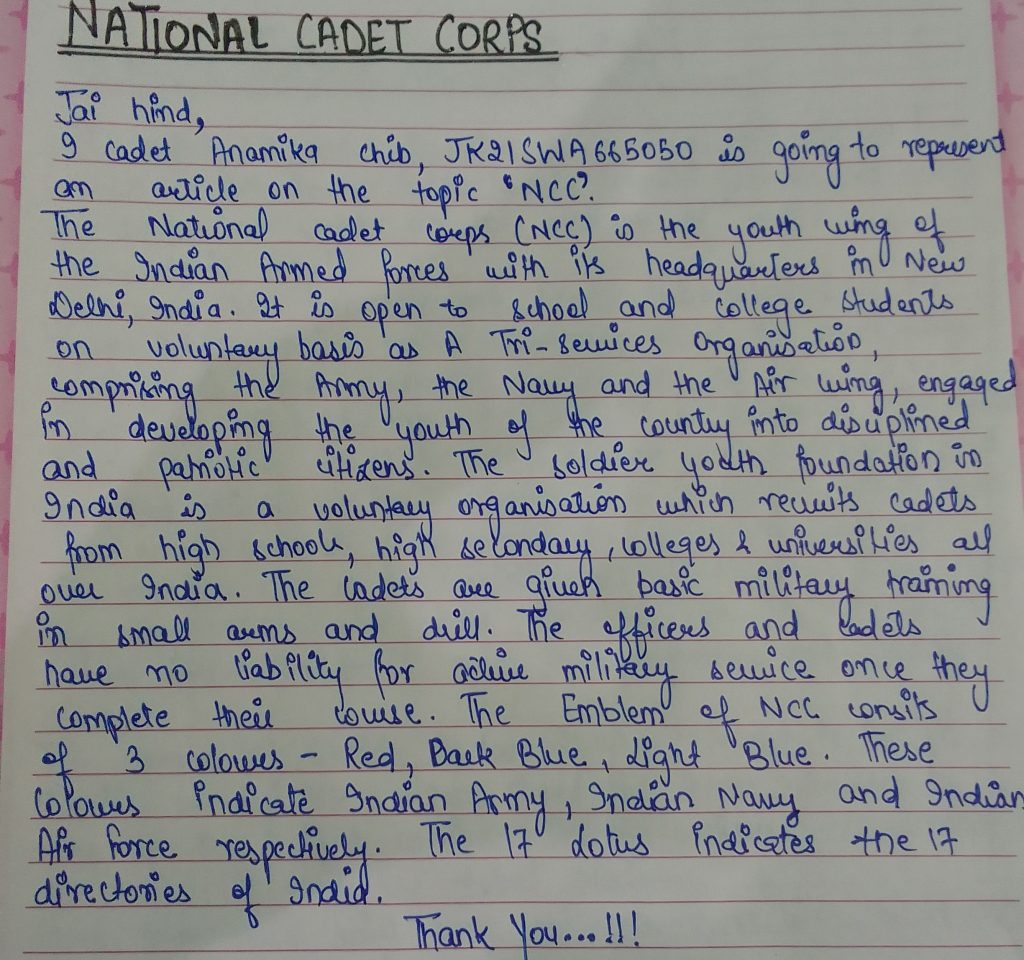 NATIONAL CADET CORPS
Jai hind,
I cadet Anamika chib, JK21SWA665050 is going to represent
an article on the topic "NCC".
The National cadet corps (NCC) is the youth wing of
the Indian Armed forces with its headquarters in New
Delhi, India. It is open to school and college students
on voluntary basis as A Tri-Services Organisation,
comprising the Army, the Navy and the Air wing, engaged
in developing the youth of the country into disciplined
and patriotic citizens. The soldier youth foundation in
India is a voluntary organisation which recruits cadets
from high schools, high secondary, colleges & universities all
over India. The Cadets are given basic military training
in small arms and drill. The officers and Cadets
have no liability for active military service once they
complete their course. The Emblem of NCC consits
of 3 colours - Red, Dark Blue, Light Blue. These
Colours indicate Indian Army, Indian Navy and Indian
Air force respectively. The 17 Lotus indicates the 17
directories of India.
Thank You...!!!